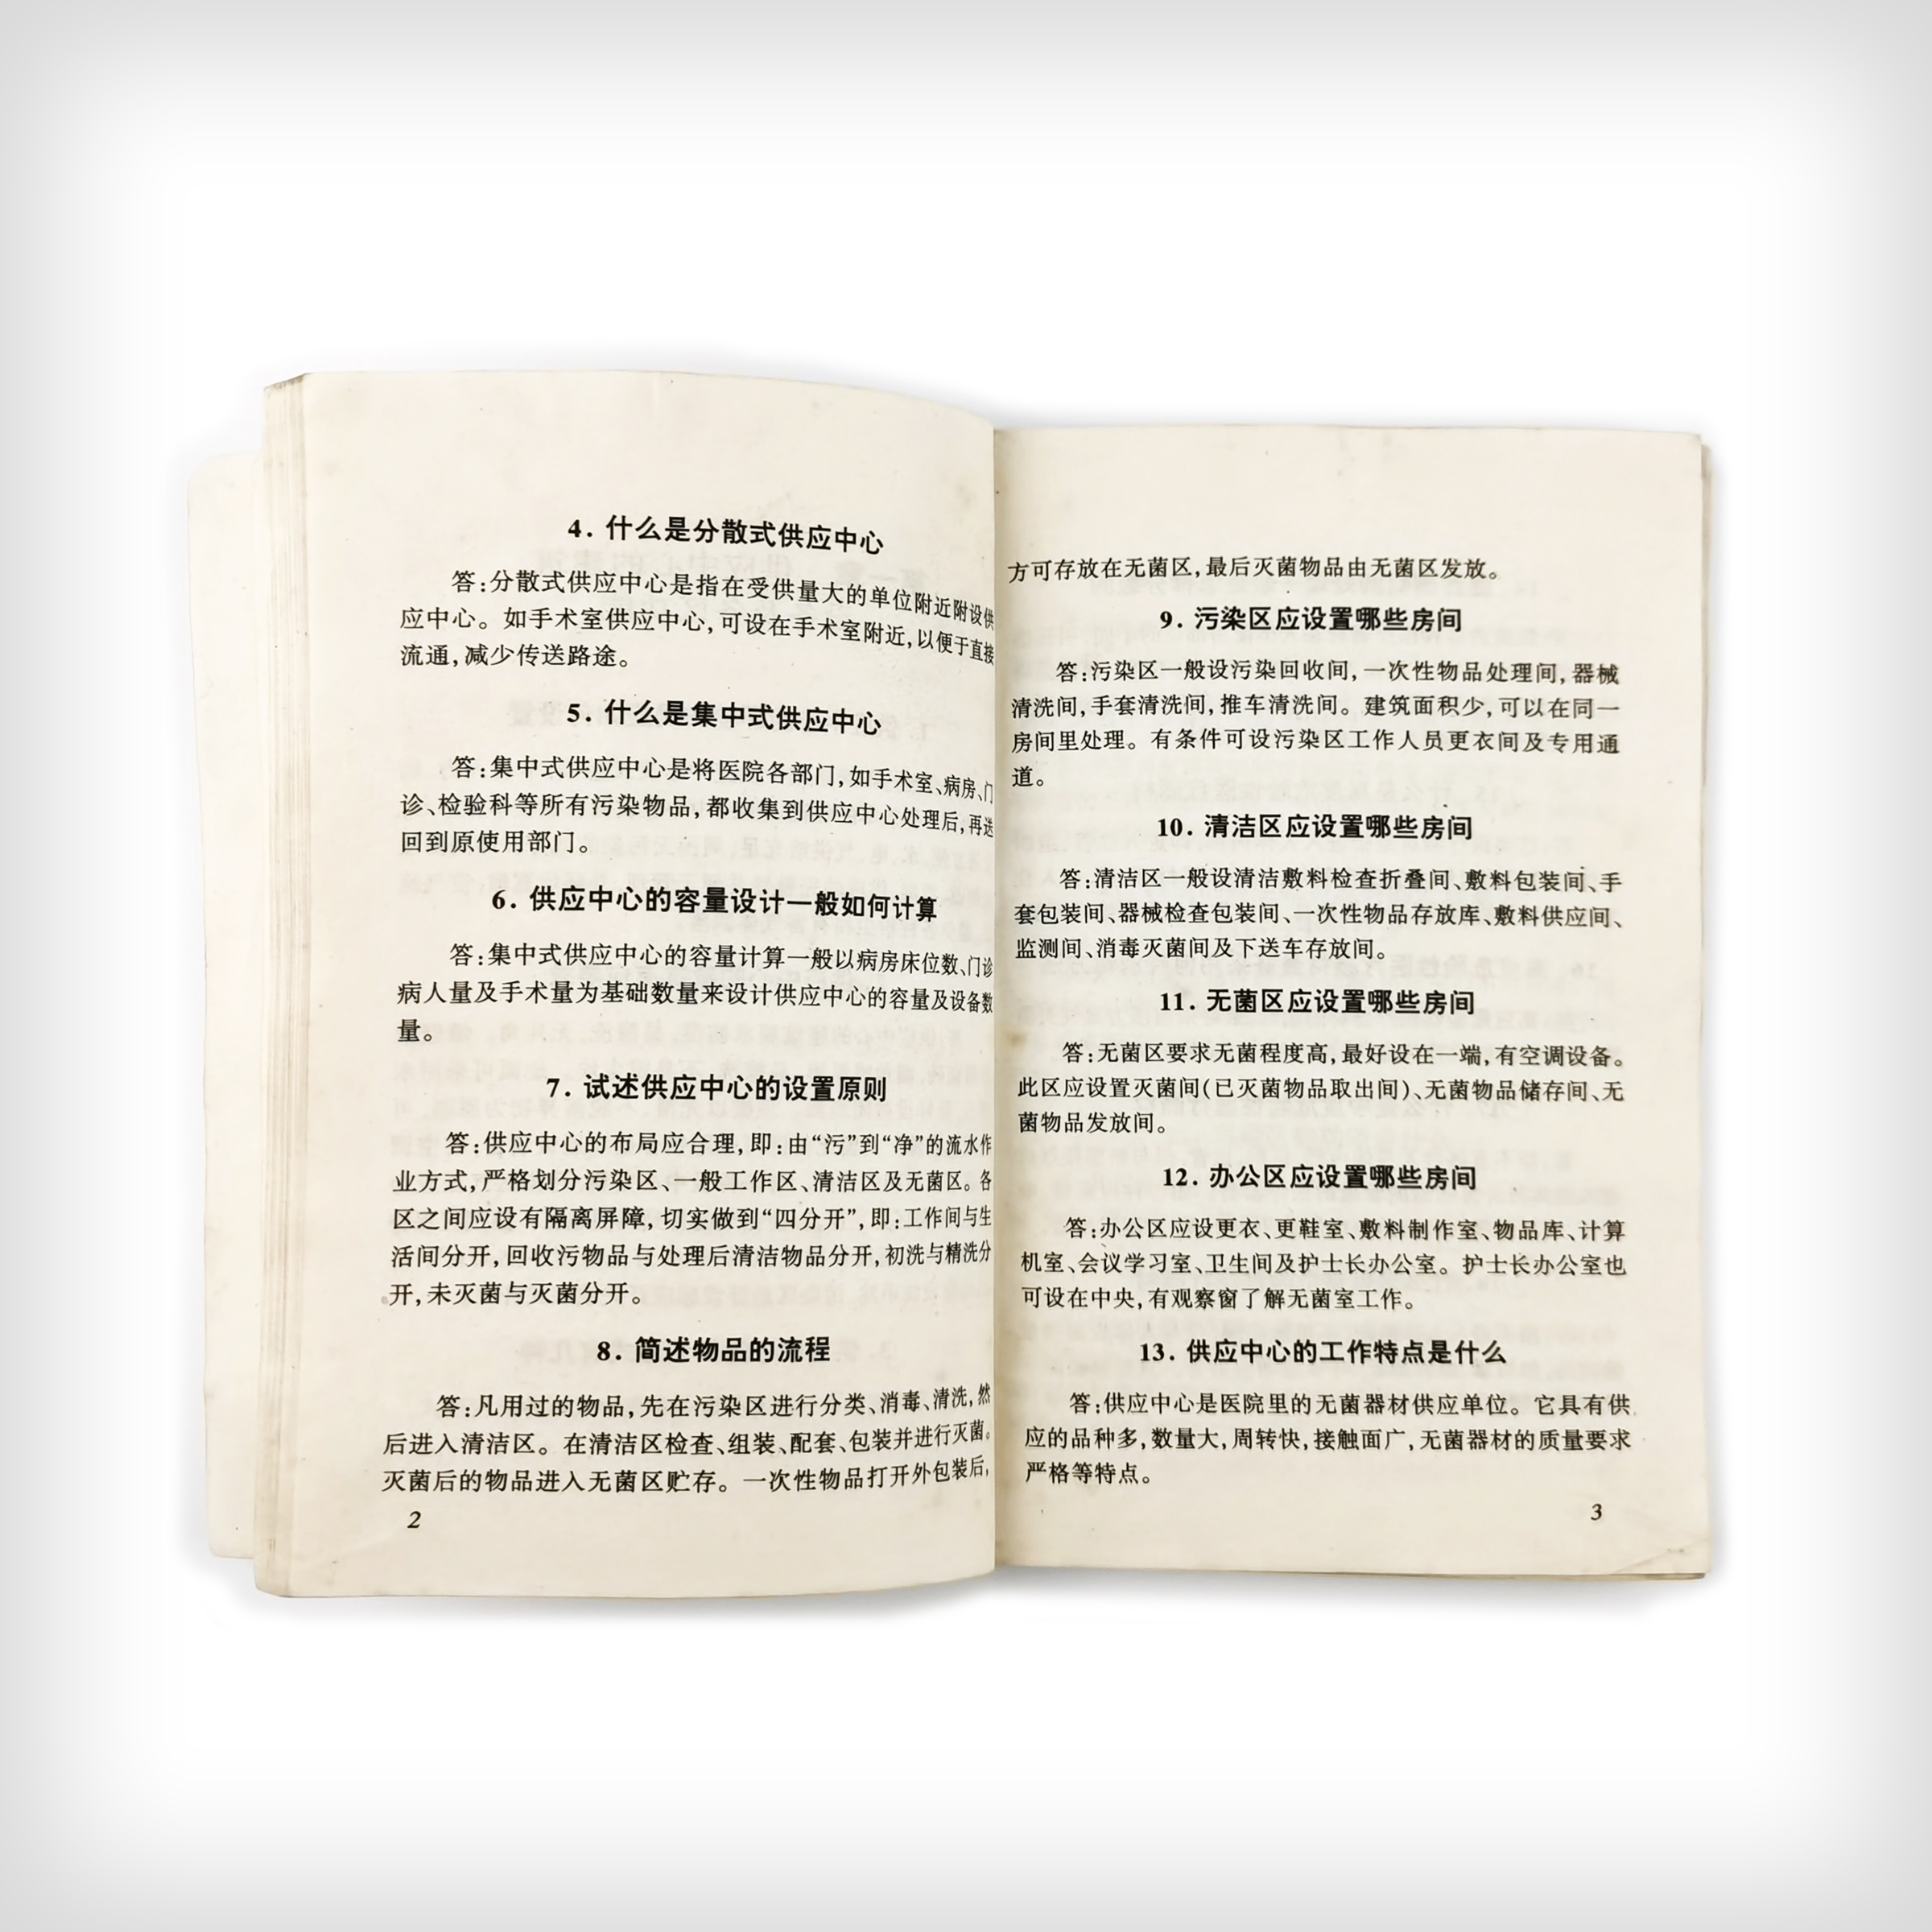 4. 什么是分散式供应中心
答:分散式供应中心是指在受供量大的单位附近附设供
应中心。如手术室供应中心,可设在手术室附近,以便于直接
流通,减少传送路途。
5. 什么是集中式供应中心
答:集中式供应中心是将医院各部门,如手术室、病房、门
诊、检验科等所有污染物品,都收集到供应中心处理后,再送
回到原使用部门。
6. 供应中心的容量设计一般如何计算
答:集中式供应中心的容量计算一般以病房床位数、门诊
病人量及手术量为基础数量来设计供应中心的容量及设备数
量。
7. 试述供应中心的设置原则
答:供应中心的布局应合理,即:由“污”到“净”的流水作
业方式,严格划分污染区、一般工作区、清洁区及无菌区。各
区之间应设有隔离屏障,切实做到“四分开”,即:工作间与生
活间分开,回收污物品与处理后清洁物品分开,初洗与精洗分
开,未灭菌与灭菌分开。
8. 简述物品的流程
答:凡用过的物品,先在污染区进行分类、消毒、清洗,然
后进入清洁区。在清洁区检查、组装、配套、包装并进行灭菌。
灭菌后的物品进入无菌区贮存。一次性物品打开外包装后,
2
方可存放在无菌区,最后灭菌物品由无菌区发放。
9. 污染区应设置哪些房间
答:污染区一般设污染回收间,一次性物品处理间,器械
清洗间,手套清洗间,推车清洗间。建筑面积少,可以在同一
房间里处理。有条件可设污染区工作人员更衣间及专用通
道。
10. 清洁区应设置哪些房间
答:清洁区一般设清洁敷料检查折叠间、敷料包装间、手
套包装间、器械检查包装间、一次性物品存放库、敷料供应间、
监测间、消毒灭菌间及下送车存放间。
11. 无菌区应设置哪些房间
答:无菌区要求无菌程度高,最好设在一端,有空调设备。
此区应设置灭菌间(已灭菌物品取出间)、无菌物品储存间、无
菌物品发放间。
12. 办公区应设置哪些房间
答:办公区应设更衣、更鞋室、敷料制作室、物品库、计算
机室、会议学习室、卫生间及护士长办公室。护士长办公室也
可设在中央,有观察窗了解无菌室工作。
13. 供应中心的工作特点是什么
答:供应中心是医院里的无菌器材供应单位。它具有供
应的品种多,数量大,周转快,接触面广,无菌器材的质量要求
严格等特点。
3